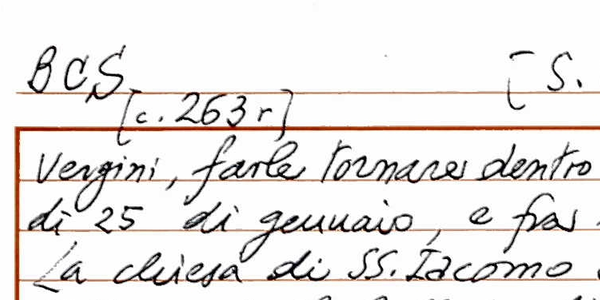 BCS [S.
[c. 263 r]
Vergini, farle tornare dentro
di 25 di gennaio, e fra
La chiesa di SS. Iacomo